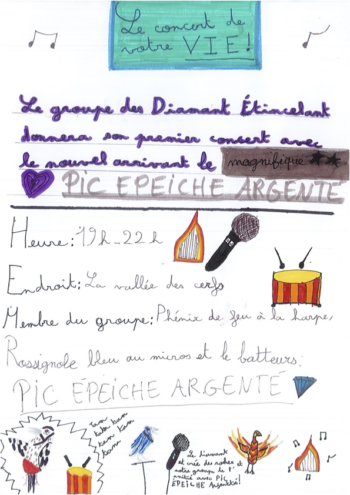 Le concert de
votre VIE!
Le groupe des Diamant Étincelant
donnera son premier consert avec
le nouvel arrivant le magnifique ★★
PIC EPEICHE ARGENTÉ
Heure: 19h_22h
Endroit: La vallée des cerfs
Membre du groupe: Phénix de feu à la harpe,
Rossignole bleu au micros et le batteurs:
PIC EPEICHE ARGENTÉ
Tam
tam tam
tam
tam
Le diamant
et notre groupe le 1er
avec PIC
EPEICHE Argenté!